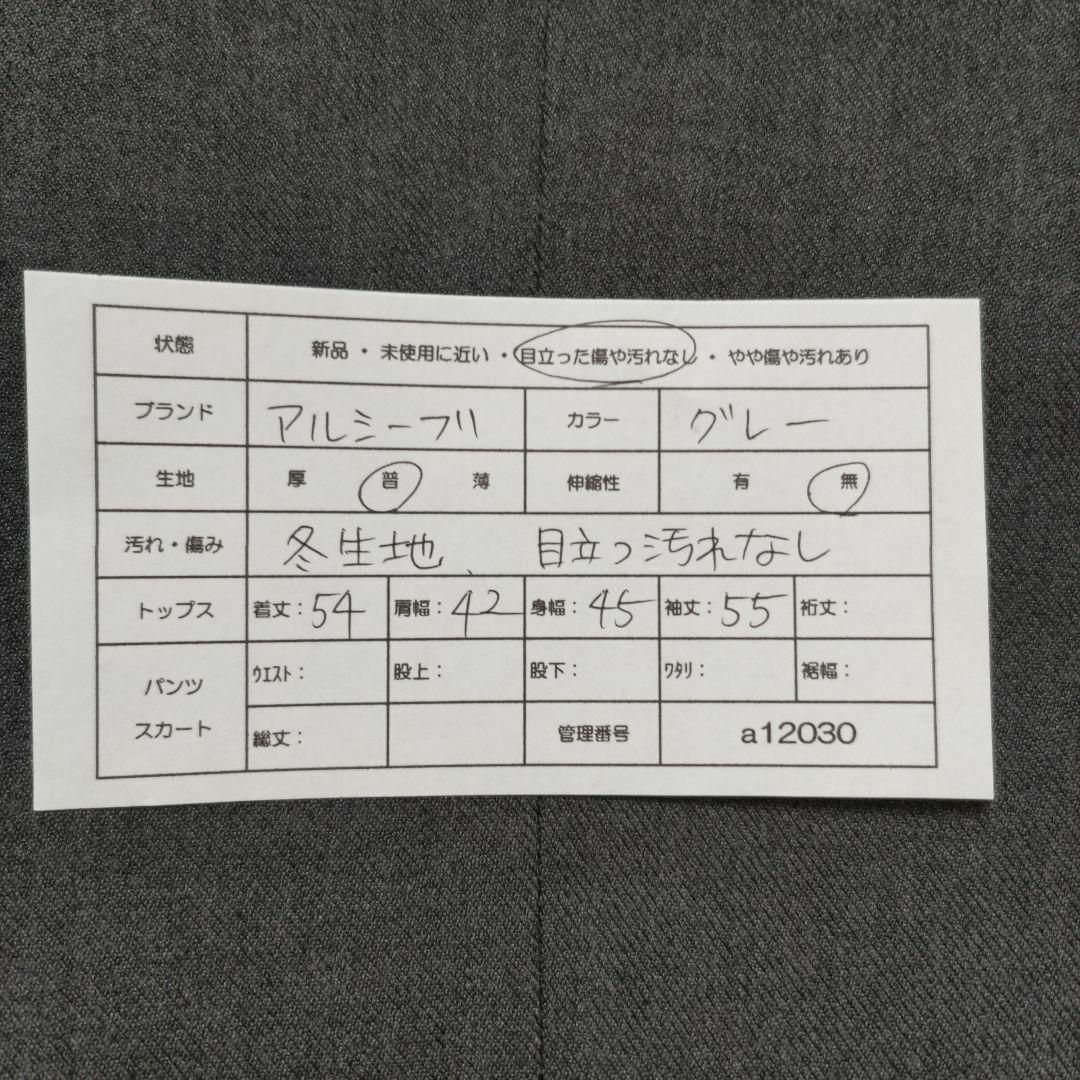 状態 新品・未使用に近い・目立った傷や汚れなし・やや傷や汚れあり
ブランド アルシーヴ カラー グレー
生地 厚 普 薄 伸縮性 有 無
汚れ・傷み 冬生地、 目立つ汚れなし
トップス 着丈：54 肩幅：42 身幅：45 袖丈：55 裄丈：
パンツ スカート
ｳｴｽﾄ： 股上： 股下： ﾜﾀﾘ： 裾幅：
総丈： 管理番号 a12030